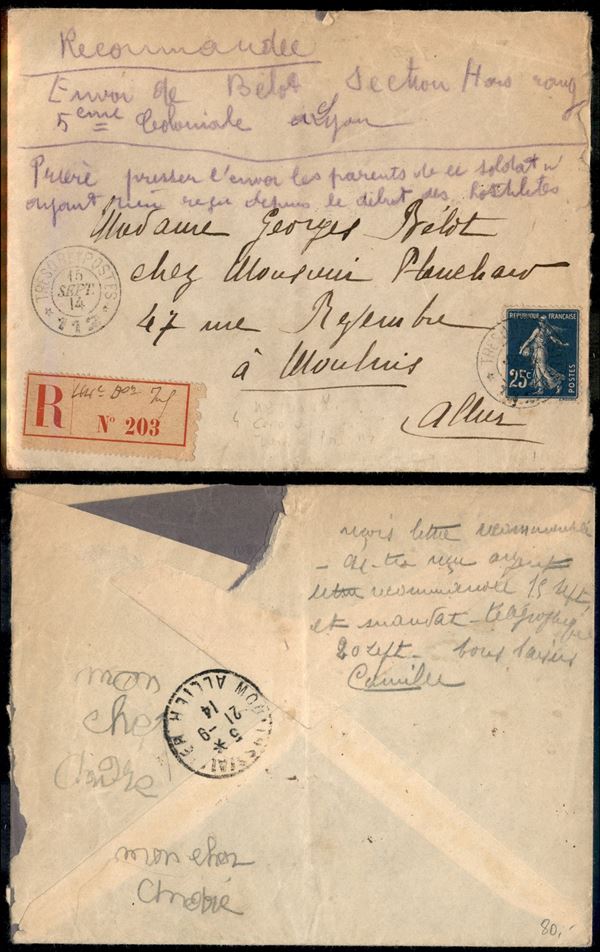 Recommandée
Envoi de Bélot Section Hors rang
5eme Coloniale Lyon
Prière presser l'envoi les parents de ce soldat n'
ayant rien reçu depuis le début des hostilités
Madame Georges Bélot
chez Monsieur Planchard
47 rue
à Moulins
Allier
TRESOR ET POSTES
15
SEPT.
14
* 112 *
REPUBLIQUE FRANÇAISE
25c
POSTES
TRESOR
R
Nº 203
reçois lettre recommandée
reçu argent
lettre recommandée 15 sept
et mandat télégraphique
20 sept. bons baisers
Camille
ALLIER
5 * -9
21
14
mon
cher
mon cher
André
80,-